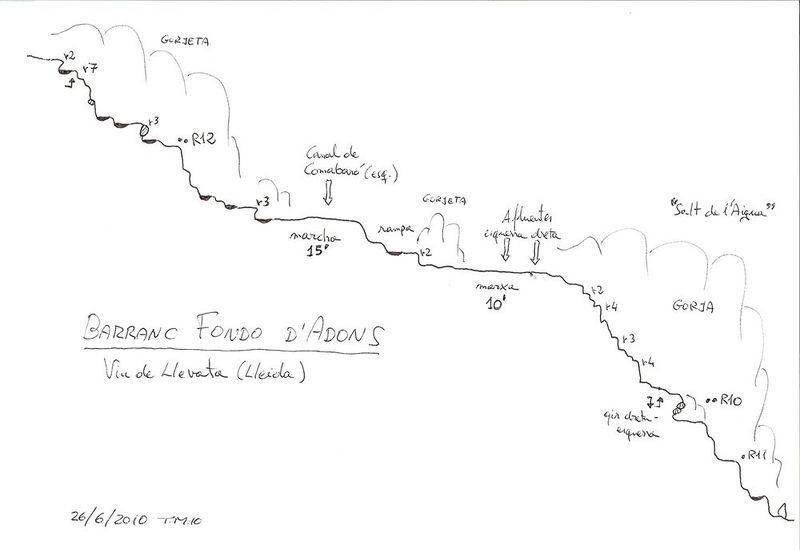 GORJETA
r2
r7
r3
R12
Canal de
Comabaró (esq.)
r3
marcha
15'
rampa
GORJETA
r2
Afluentes
esquerra dreta
marxa
10'
"Salt de l'Aigua"
GORJA
r2
r4
r3
r4
gir dreta-
esquerra
R10
R11
BARRANC FONDO D'ADONS
Viu de Llevata (Lleida)
26/6/2010 T.M.10